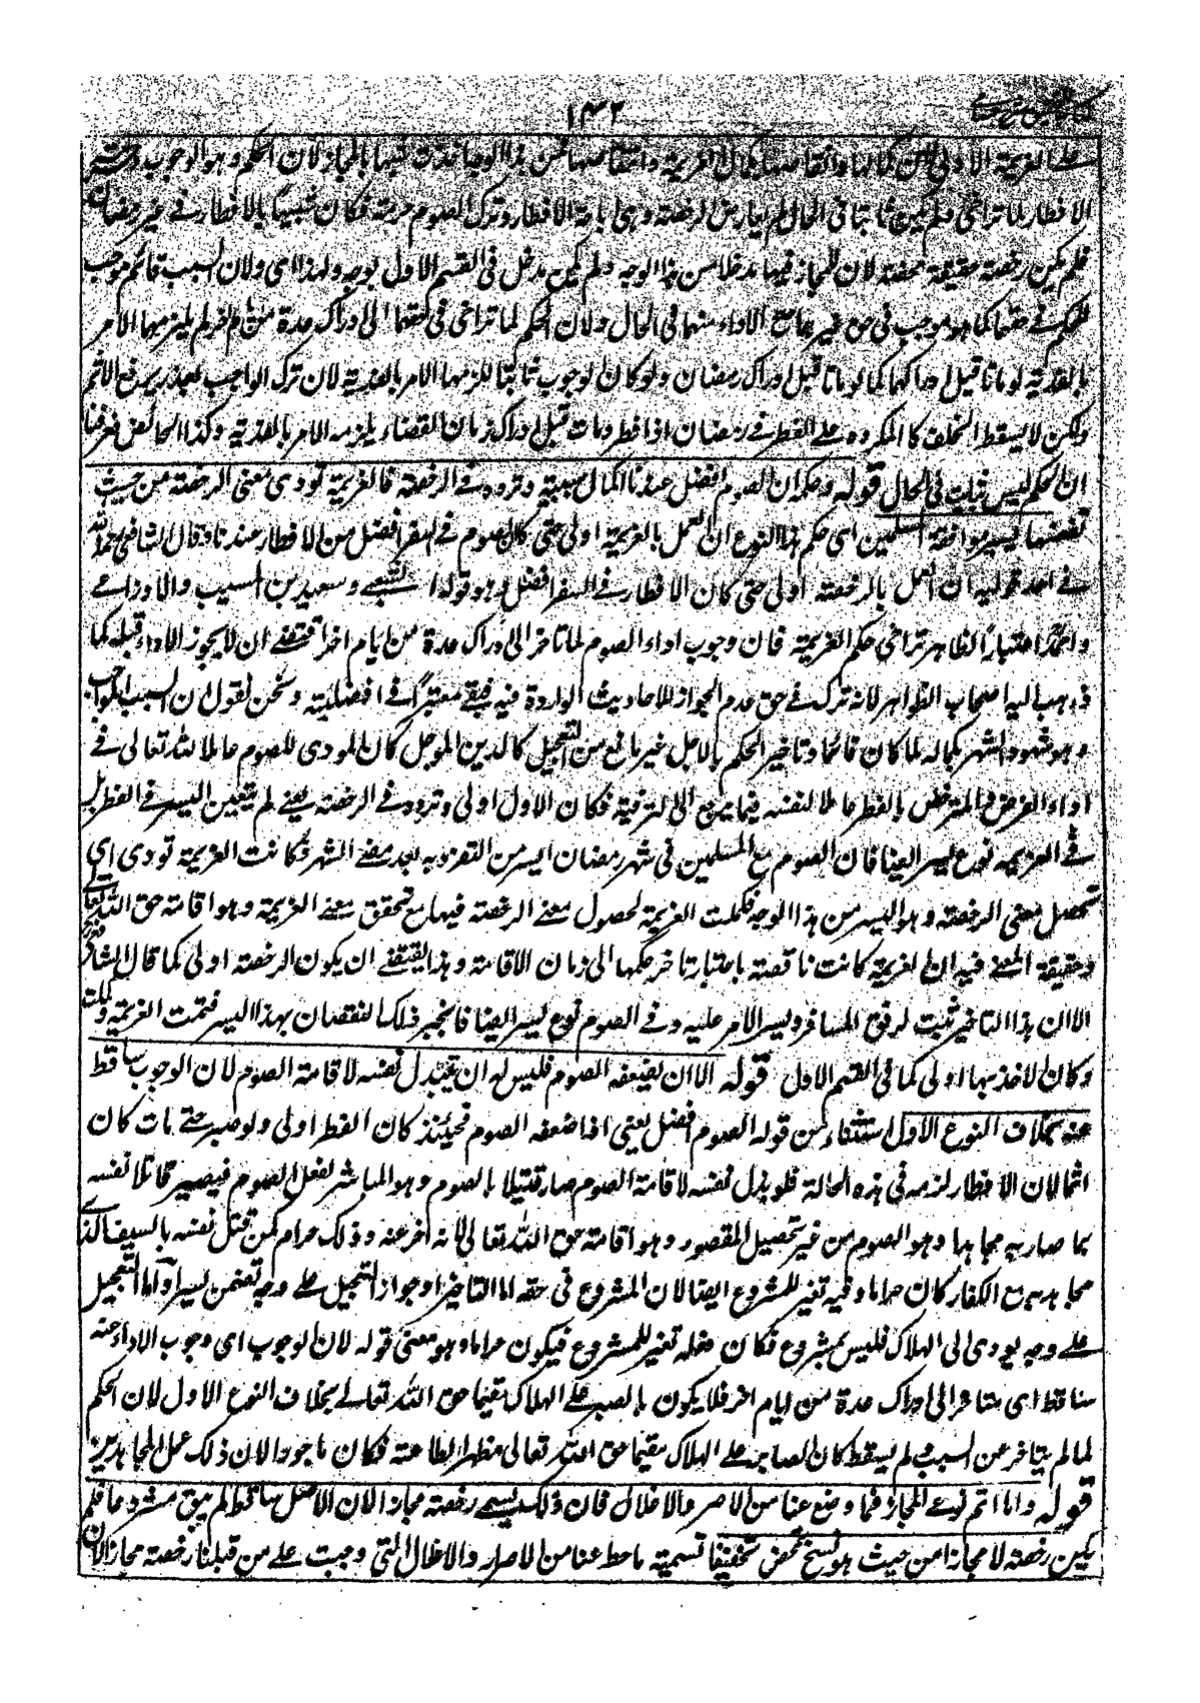 ١٤٢
على العزيمة الاولى لان كمالها وانتقاصها بكمال العزيمة وانتقاصها فمن هذا الوجه اخذت شبها بالمجاز لان الحكم وهو الوجوب وحرمة
الافطار لما تراخى ولم يكن ثابتا فى الحال لم يعارض الرخصة وهى اباحة الافطار وترك الصوم حرمة فكان شبيها بالافطار فى غير رمضان
فلم يكن رخصة حقيقة محضة لان للمجاز فيها مدخلا من هذا الوجه ولم يكن مدخل فى القسم الاول بوجه ولهذا اى ولان السبب قائم موجب
للحكم فى حقهما كما هو موجب فى حق غيرهما صح الاداء منهما فى الحال ولان الحكم لما تراخى فى حقهما الى ادراك عدة من ايام اخر لم يلزمهما الامر
بالفدية لو ماتا قبل ادراكها كما لو ماتا قبل ادراك رمضان ولو كان الوجوب ثابتا للزمها الامر بالفدية لان ترك الواجب بعذر يرفع الاثم
ولكن لا يسقط الخلف كالمكره على الفطر فى رمضان اذا افطر ومات قبل ادراك زمان القضاء يلزمه الامر بالفدية وكذا الحائض فعرفنا
ان الحكم ليس بثابت فى الحال قوله وحكمه ان الصوم افضل عندنا لكمال سببه وتردد فى الرخصة فالعزيمة تودى معنى الرخصة من حيث
تضمنها يسر موافقة المسلمين اى حكم هذا النوع ان العمل بالعزيمة اولى حتى كان الصوم فى السفر افضل من الافطار عندنا وقال الشافعى رحمه الله
فى احد قوليه ان العمل بالرخصة اولى حتى كان الافطار فى السفر افضل وهو قول الشعبى وسعيد بن المسيب والاوزاعى
واحمد اعتبارا لظاهر تراخى حكم العزيمة فان وجوب اداء الصوم لما تاخر الى ادراك عدة من ايام اخر اقتضى ان لا يجوز الاداء قبله كما
ذهب اليه اصحاب الظواهر لانه ترك فى حق عدم الجواز للاحاديث الواردة فيه فبقى معتبرا فى افضليته ونحن نقول ان السبب الموجب
وهو شهود الشهر بكماله لما كان قائما وتاخير الحكم بالاجل غير مانع من التعجيل كالدين المؤجل كان المودى للصوم عاملا لله تعالى فى
اداء الفرض والمترخص بالفطر عاملا لنفسه فيما يرجع الى الترفية فكان الاول اولى وتردد فى الرخصة يعنى لم يتعين اليسر فى الفطر بل
فى العزيمة نوع يسر ايضا فان الصوم مع المسلمين فى شهر رمضان ايسر من التفرد به بعد مضى الشهر فكانت العزيمة تودى اى
تحصل معنى الرخصة وهو اليسر من هذا الوجه فكملت العزيمة لحصول معنى الرخصة فيها مع تحقق معنى العزيمة وهو اقامة حق الله تعالى
وحقيقة المعنى فيه ان العزيمة كانت ناقصة باعتبار تاخر حكمها الى زمان الاقامة وهذا يقتضى ان يكون الرخصة اولى كما قال الشافعى
الا ان هذا التاخير ثبت لرفق المسافر ويسر الامر عليه وفى الصوم نوع يسر ايضا فانجبر ذلك النقصان بهذا اليسر فتمت العزيمة وكملت
وكان الاخذ بها اولى كما فى القسم الاول قوله الا ان يضعفه الصوم فليس له ان يبذل نفسه لاقامة الصوم لان الوجوب ساقط
عنه بخلاف النوع الاول استثناء من قوله الصوم افضل يعنى اذا اضعفه الصوم فحينئذ كان الفطر اولى ولو صبر حتى مات كان
اثما لان الافطار لزمه فى هذه الحالة فلو بذل نفسه لاقامة الصوم صار قتيلا بالصوم وهو المباشر لفعل الصوم فيصير قاتلا نفسه
بما صار به مجاهدا وهو الصوم من غير تحصيل المقصود وهو اقامة حق الله تعالى لانه اخر عنه وذلك حرام كمن قتل نفسه بالسيف الذى
يجاهد به مع الكفار كان حراما وفيه تغير للمشروع ايضا لان المشروع فى حقه اما التاخير او جواز التعجيل على وجه تضمن يسرا واما التعجيل
على وجه يودى الى الهلاك فليس بمشروع فكان فعله تغيرا للمشروع فيكون حراما وهو معنى قوله لان الوجوب اى وجوب الاداء عنه
ساقط اى متاخر الى ادراك عدة من ايام اخر فلا يكون بالصبر على الهلاك مقيما حق الله تعالى بخلاف النوع الاول لان الحكم
لما لم يتاخر عن السبب لم يسقط كان الصابر على الهلاك مقيما حق الله تعالى مظهر الطاعة فكان ماجورا لان ذلك عمل المجاهدين
قوله واما اتم نوعى المجاز فما وضع عنا من الاصر والاغلال فان ذلك يسمى رخصة مجازا لان الاصل ساقط لم يبق مشروعا فلم
يكن رخصة الا مجازا من حيث هو نسخ تمحض تخفيفا تسمية ما حط عنا من الاصار والاغلال التى وجبت على من قبلنا رخصة مجازا لان